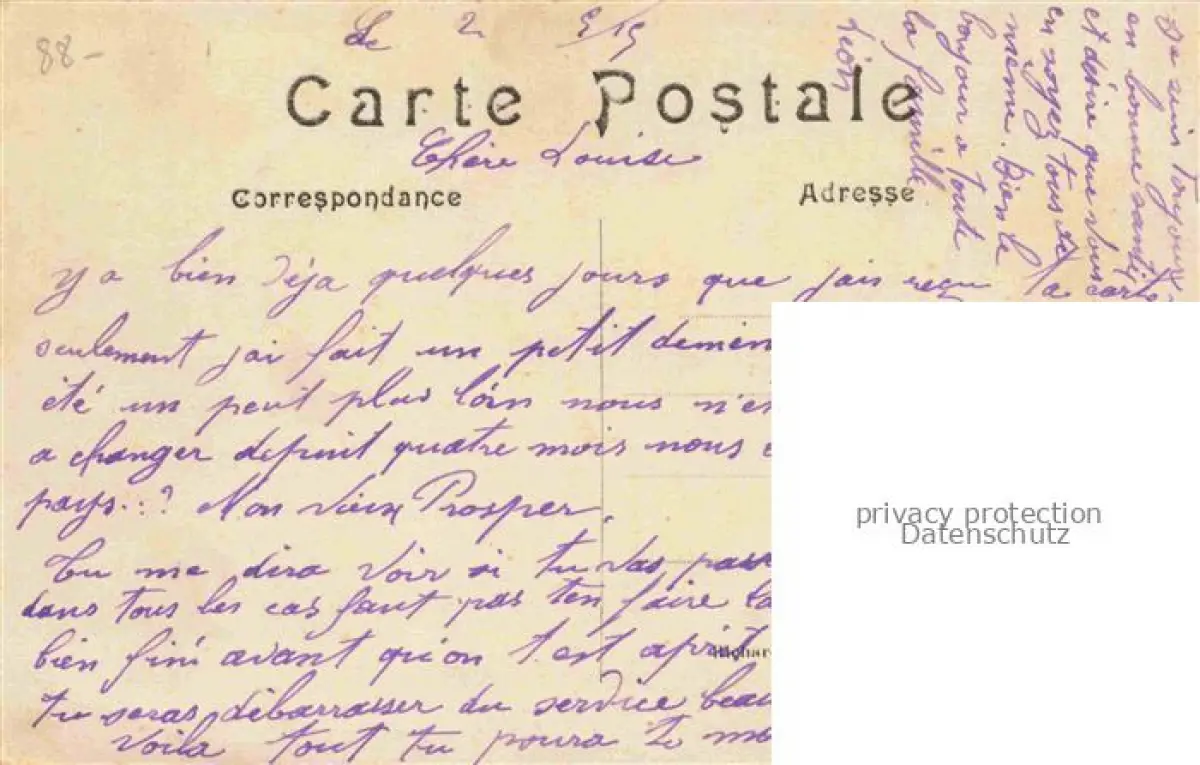 88-
Le 2 9/15
Carte Postale
Chère Louise
Correspondance
Adresse
y a bien Déja quelques jours que jais reçu
seulement jai fait un petit demén
été un peut plus loin nous n'es
a changer depuit quatre mois nous
pays..? Mon vieux Prosper.
Tu me dira voir si tu vas pass
dans tous les cas faut pas ten faire la
bien fini avant qu'on t'est
tu seras débarrasser du service beau
Voila tout tu poura te
Je suis toujours
en bonne santé
et désire que vous
en soyez tous de
même. Bien le
bonjour a toute
la famille
Léon
ta carte
privacy protection
Datenschutz